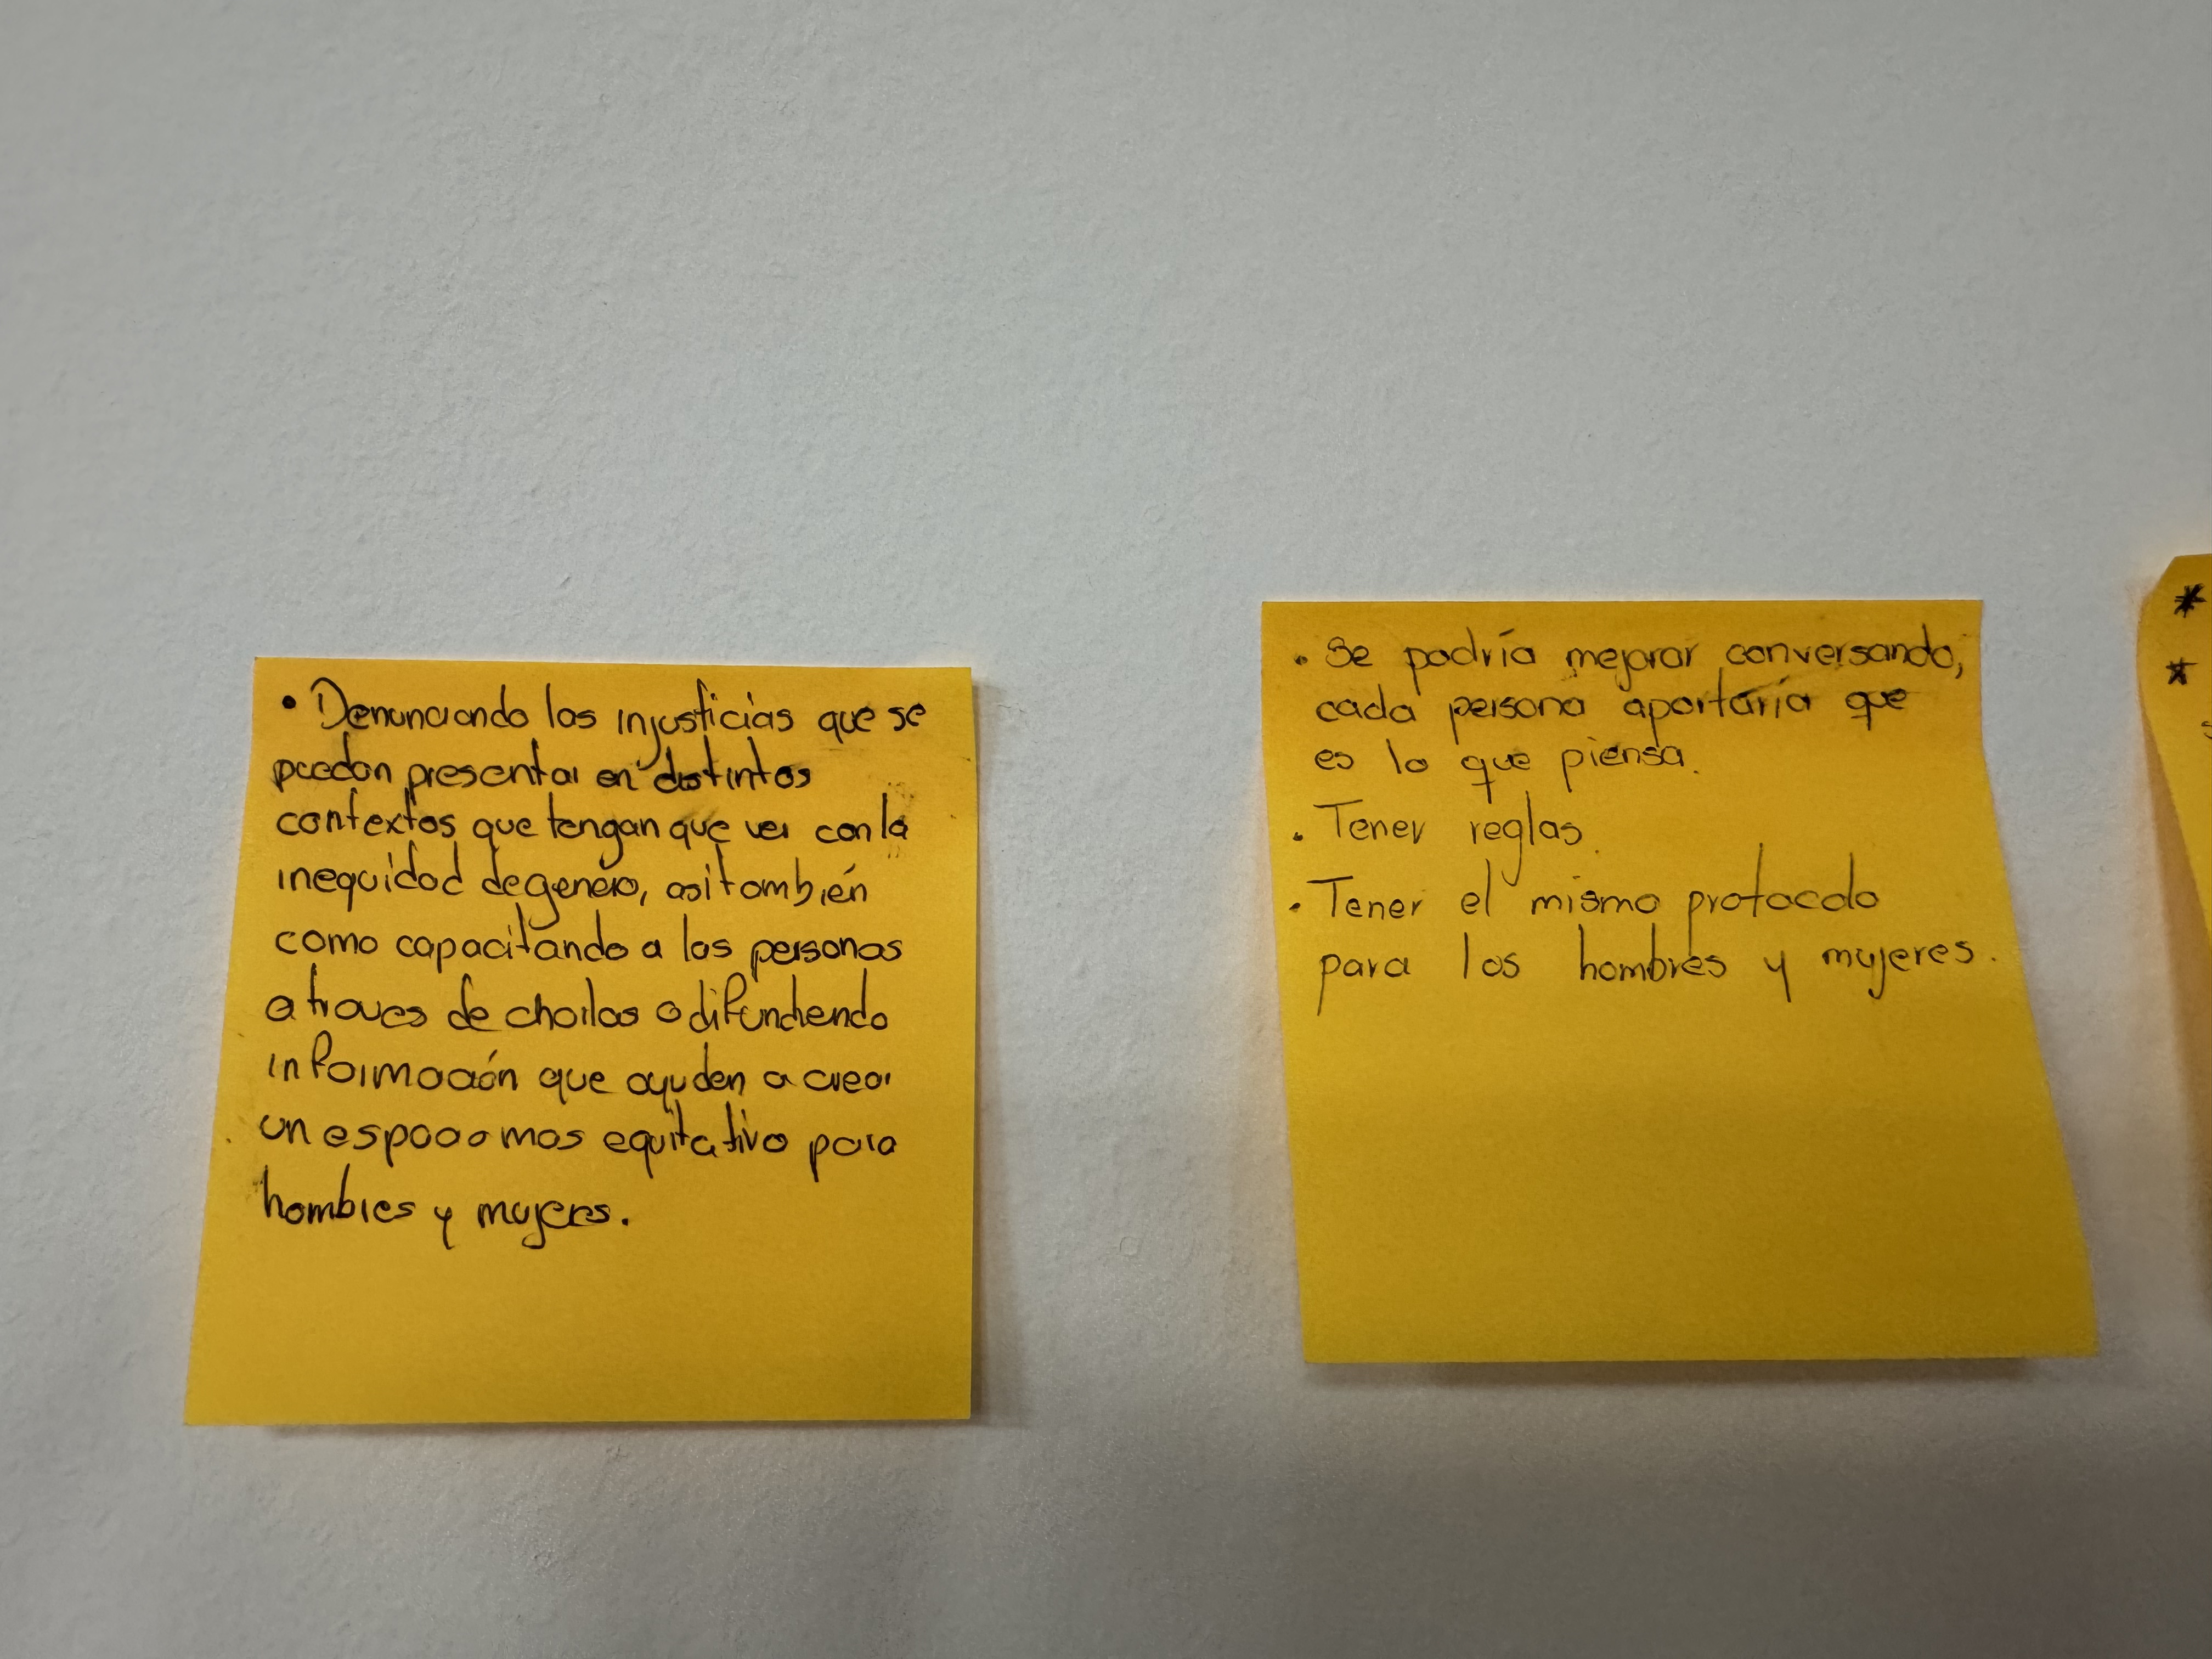 • Denunciando las injusticias que se
puedan presentar en distintos
contextos que tengan que ver con la
inequidad de genero, asi también
como capacitando a las personas
a traves de charlas o difundiendo
información que ayuden a crear
un espacio mas equitativo para
hombres y mujeres.
• Se podría mejorar conversando,
cada persona aportaría que
es lo que piensa.
• Tener reglas.
• Tener el mismo protocolo
para los hombres y mujeres.
*
*